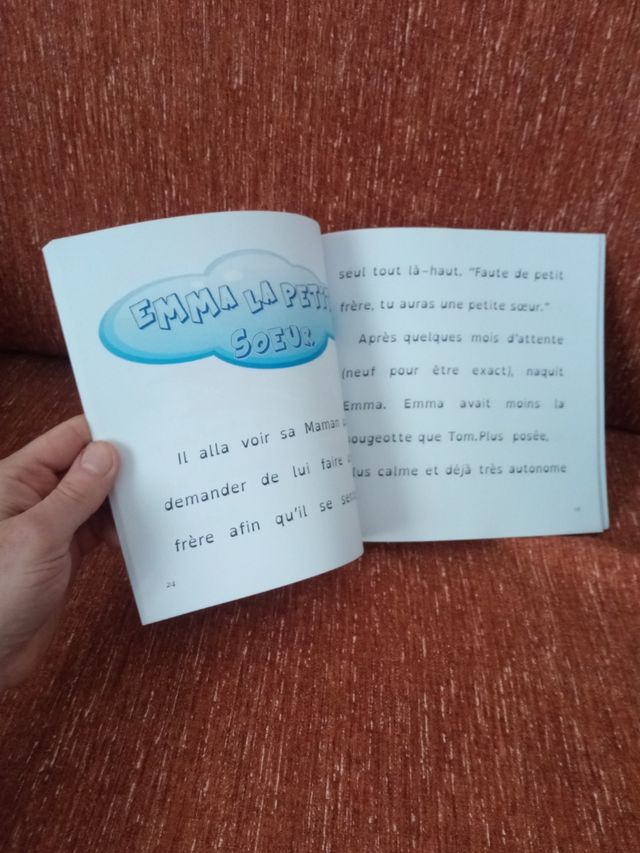 EMMA LA PETITE
SOEUR.
Il alla voir sa Maman
demander de lui faire
frère afin qu'il se
24
seul tout là-haut. "Faute de petit
frère, tu auras une petite sœur."
Après quelques mois d'attente
(neuf pour être exact), naquit
Emma. Emma avait moins la
bougeotte que Tom.Plus posée,
plus calme et déjà très autonome